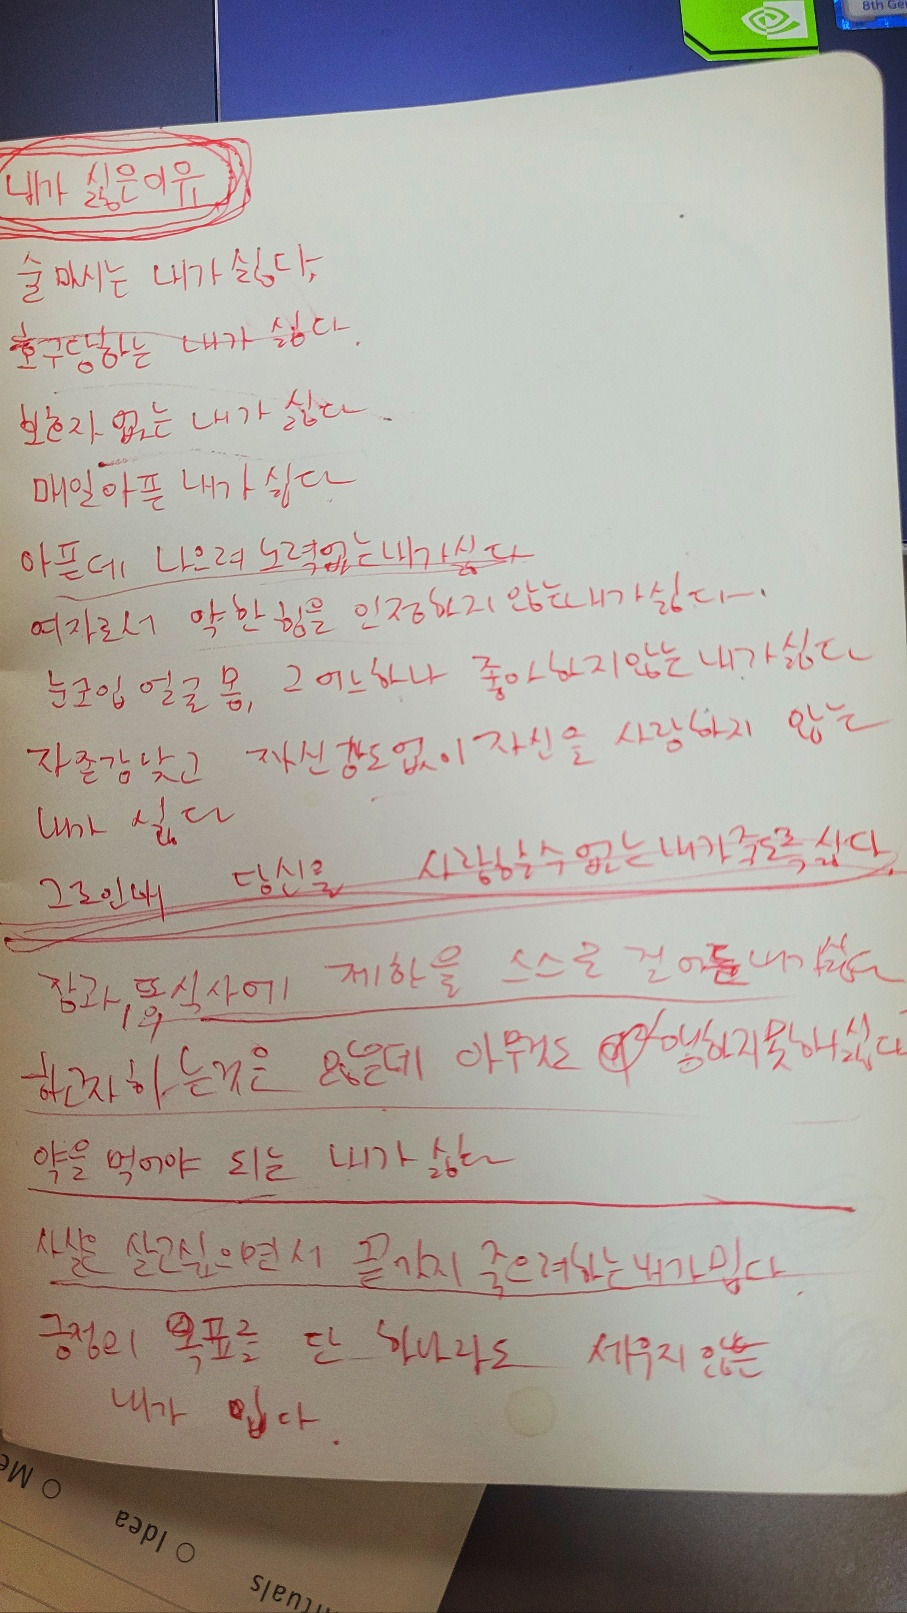 8th Ge
내가 싫은이유
술 마시는 내가싫다,
호구당하는 내가 싫다.
보호자 없는 내가 싫다
매일아픈 내가싫다
아픈데 나으려 노력없는내가싫다
여자로서 약한힘을 인정하지 않는내가싫다.
눈코입 얼굴 몸, 그 어느하나 좋아하지않는 내가싫다
자존감낮고 자신감도없이 자신을 사랑하지 않는
내가 싫다
그로인해 당신을 사랑할수없는내가죽도록싫다
장과, 식사에 제한을 스스로 걸어둔 내가싫다
혼자하는것은 않은데 아무것도 행하지못해싫다
약을 먹어야 되는 내가싫다
사실은 살고싶으면서 끝까지 죽으려하는내가밉다.
긍정의 목표를 단 하나라도 세우지 않는
내가 밉다.
O Me
O Idea
ntuals